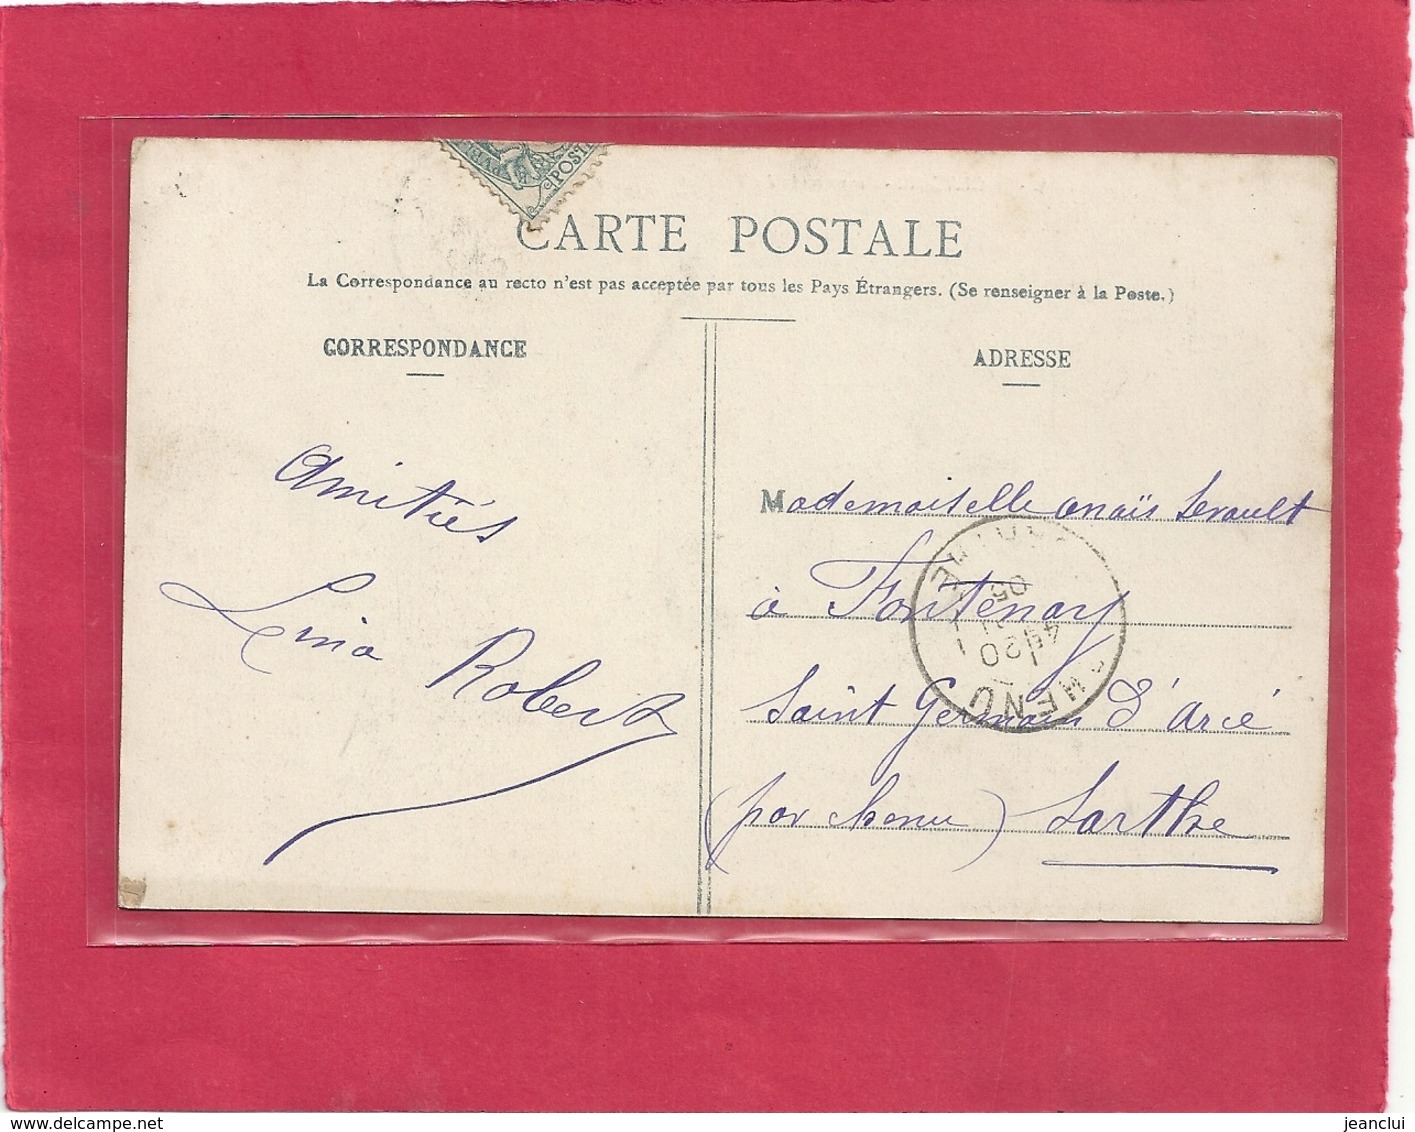 POSTE
CARTE POSTALE
La Correspondance au recto n'est pas acceptée par tous les Pays Étrangers. (Se renseigner à la Poste.)
CORRESPONDANCE
Amitiés
Lina Robert
ADRESSE
Mademoiselle Anaïs
à Fontenay
Saint Germain d'Arcé
(par Chenu) Sarthe
CHENU
20
05
delcampe.net
jeanclui